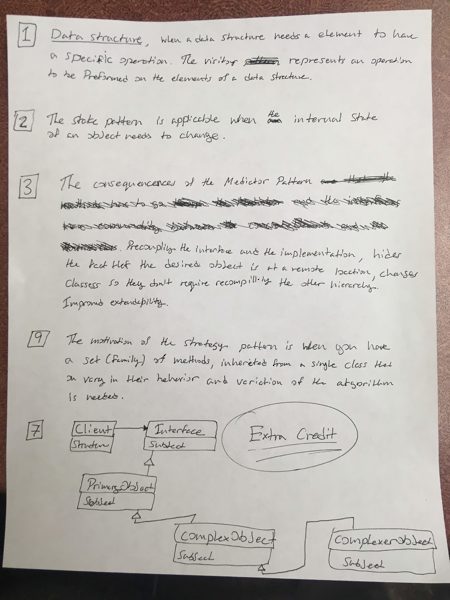 1 Data structure, when a data structure needs a element to have
a specific operation. The visitor represents an operation
to be Preformed on the elements of a data structure.
2 The state pattern is applicable when the internal state
of an object needs to change.
3 The consequencences of the Mediator Pattern
Precoupling the interface and the implementation, hides
the fact that the desired object is at a remote location, changes
classes so they don't require recompiling the other hierarchy.
Improved extendability.
9 The motivation of the strategy pattern is when you have
a set (family) of methods, inhereted from a single class that
vary in their behavior and variation of the algorithm
is needed.
7 Client Interface Extra Credit
Structure Subject
Primary Object
Subject
Complex Object Complexer Object
Subject Subject